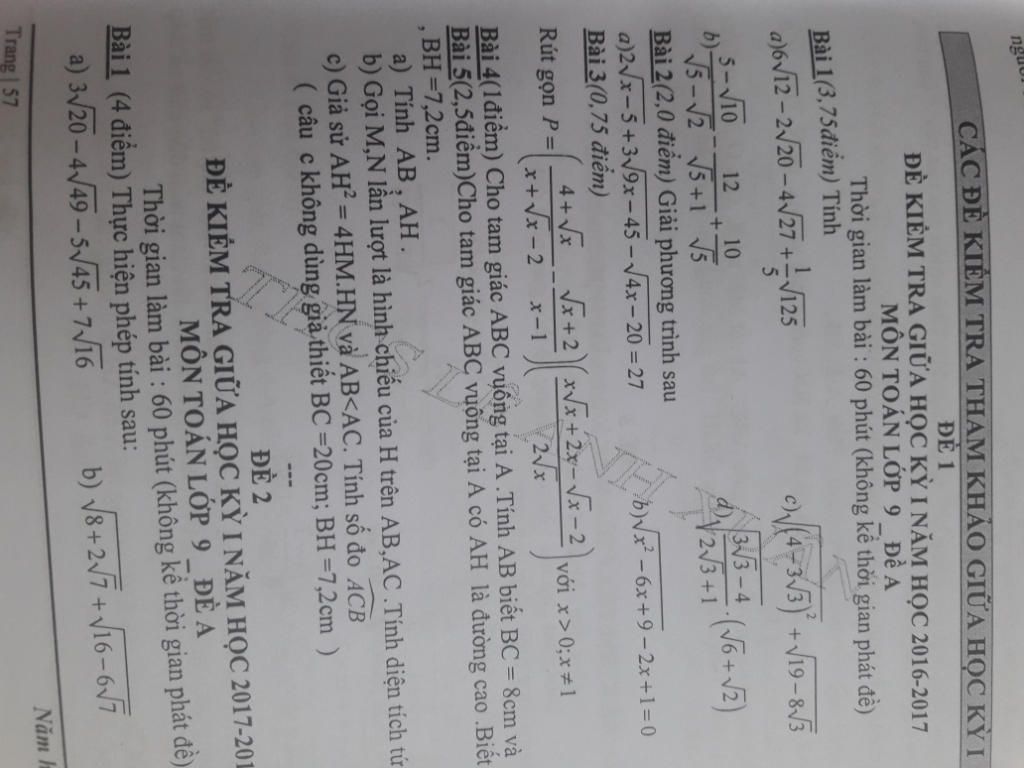 CÁC ĐỀ KIỂM TRA THAM KHẢO GIỮA HỌC KỲ I
ĐỀ 1
ĐỀ KIỂM TRA GIỮA HỌC KỲ I NĂM HỌC 2016-2017
MÔN TOÁN LỚP 9 _ ĐỀ A
Thời gian làm bài : 60 phút (không kể thời gian phát đề)
Bài 1(3,75điểm) Tính
a)6√12 − 2√20 − 4√27 + 1/5 √125 c)√((4−3√3)²) + √(19−8√3)
b) (5−√10)/(√5−√2) − 12/(√5+1) + 10/√5 d)√((3√3−4)/(2√3+1)) . (√6+√2)
Bài 2(2,0 điểm) Giải phương trình sau
a)2√(x−5) + 3√(9x−45) − √(4x−20) = 27 b)√(x²−6x+9) − 2x+1 = 0
Bài 3(0,75 điểm)
Rút gọn P = ((4+√x)/(x+√x−2) − (√x+2)/(x−1)) ((x√x+2x−√x−2)/(2√x)) với x > 0; x ≠ 1
Bài 4(1điểm) Cho tam giác ABC vuông tại A .Tính AB biết BC = 8cm và
Bài 5(2,5điểm)Cho tam giác ABC vuông tại A có AH là đường cao .Biết
, BH =7,2cm.
a) Tính AB , AH .
b) Gọi M,N lần lượt là hình chiếu của H trên AB,AC . Tính diện tích tứ
c) Giả sử AH² = 4HM.HN và AB<AC. Tính số đo ACB
( câu c không dùng giả thiết BC =20cm; BH =7,2cm )
---
ĐỀ 2
ĐỀ KIỂM TRA GIỮA HỌC KỲ I NĂM HỌC 2017-201
MÔN TOÁN LỚP 9 _ ĐỀ A
Thời gian làm bài : 60 phút (không kể thời gian phát đề)
Bài 1 (4 điểm) Thực hiện phép tính sau:
a) 3√20 − 4√49 − 5√45 + 7√16 b) √(8+2√7) + √(16−6√7)
Trang | 57 Năm h